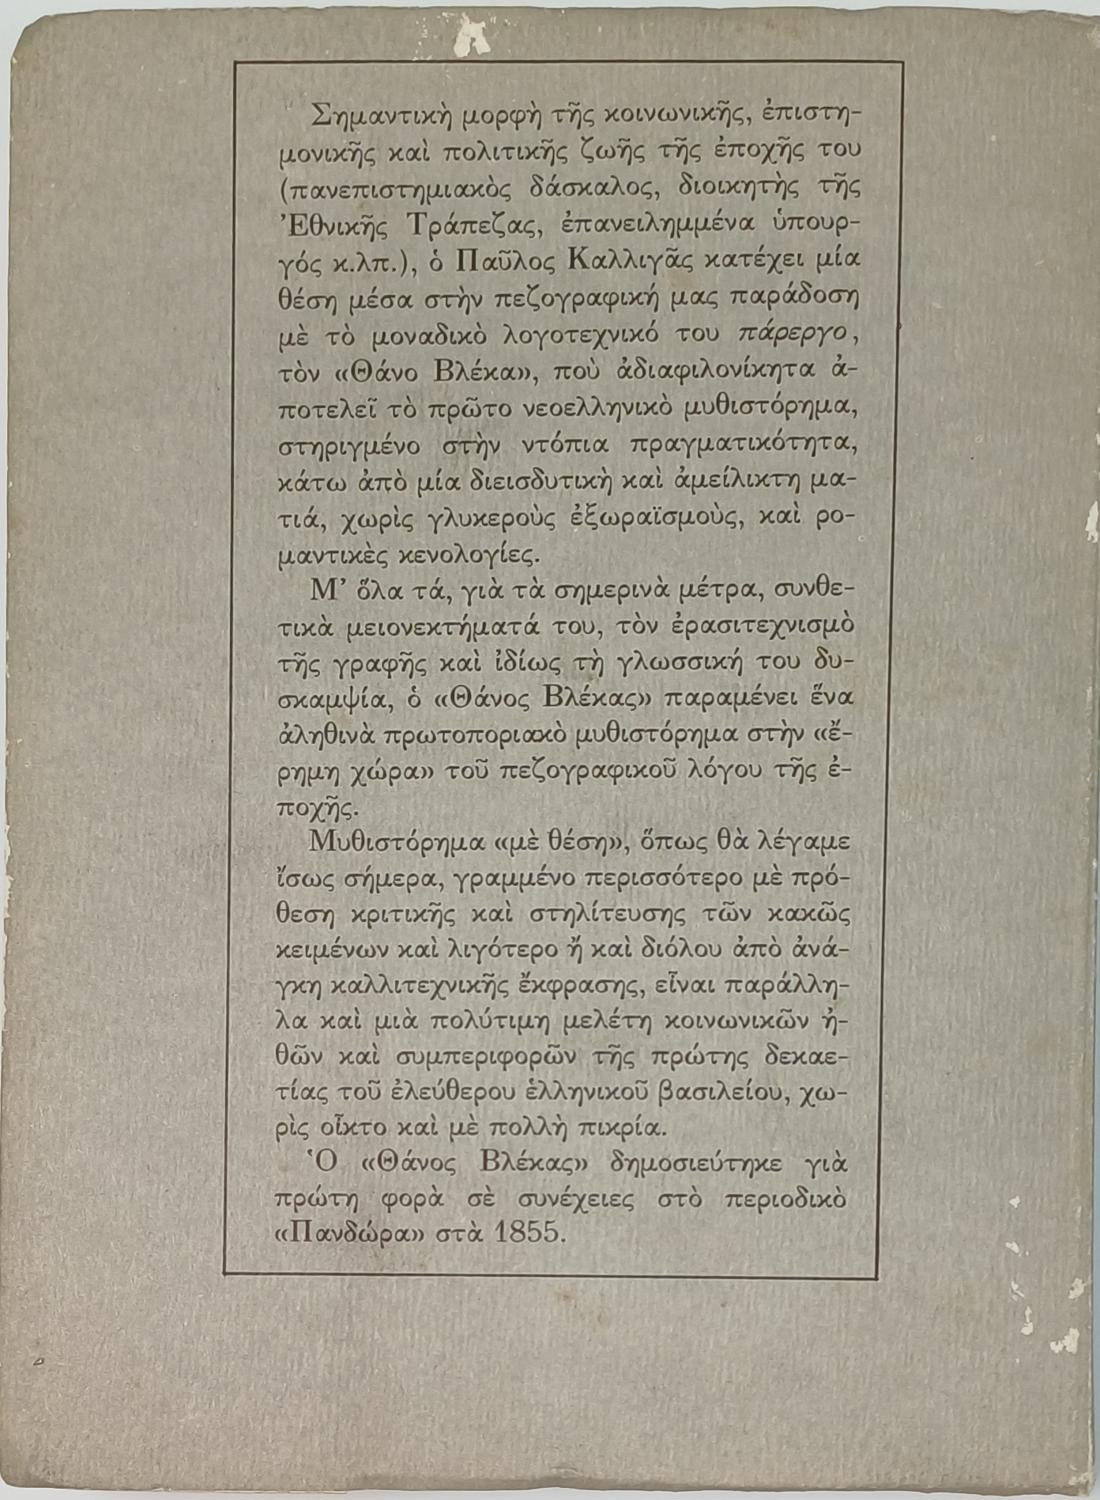 Σημαντικὴ μορφὴ τῆς κοινωνικῆς, ἐπιστη-
μονικῆς καὶ πολιτικῆς ζωῆς τῆς ἐποχῆς του
(πανεπιστημιακὸς δάσκαλος, διοικητὴς τῆς
Ἐθνικῆς Τράπεζας, ἐπανειλημμένα ὑπουρ-
γός κ.λπ.), ὁ Παῦλος Καλλιγᾶς κατέχει μία
θέση μέσα στὴν πεζογραφική μας παράδοση
μὲ τὸ μοναδικὸ λογοτεχνικό του πάρεργο,
τὸν «Θάνο Βλέκα», ποὺ ἀδιαφιλονίκητα ἀ-
ποτελεῖ τὸ πρῶτο νεοελληνικὸ μυθιστόρημα,
στηριγμένο στὴν ντόπια πραγματικότητα,
κάτω ἀπὸ μία διεισδυτικὴ καὶ ἀμείλικτη μα-
τιά, χωρὶς γλυκεροὺς ἐξωραϊσμοὺς, καὶ ρο-
μαντικὲς κενολογίες.
Μ' ὅλα τά, γιὰ τὰ σημερινὰ μέτρα, συνθε-
τικὰ μειονεκτήματά του, τὸν ἐρασιτεχνισμὸ
τῆς γραφῆς καὶ ἰδίως τὴ γλωσσική του δυ-
σκαμψία, ὁ «Θάνος Βλέκας» παραμένει ἕνα
ἀληθινὰ πρωτοποριακὸ μυθιστόρημα στὴν «ἔ-
ρημη χώρα» τοῦ πεζογραφικοῦ λόγου τῆς ἐ-
ποχῆς.
Μυθιστόρημα «μὲ θέση», ὅπως θὰ λέγαμε
ἴσως σήμερα, γραμμένο περισσότερο μὲ πρό-
θεση κριτικῆς καὶ στηλίτευσης τῶν κακῶς
κειμένων καὶ λιγότερο ἤ καὶ διόλου ἀπὸ ἀνά-
γκη καλλιτεχνικῆς ἔκφρασης, εἶναι παράλλη-
λα καὶ μιὰ πολύτιμη μελέτη κοινωνικῶν ἠ-
θῶν καὶ συμπεριφορῶν τῆς πρώτης δεκαε-
τίας τοῦ ἐλεύθερου ἑλληνικοῦ βασιλείου, χω-
ρὶς οἶκτο καὶ μὲ πολλὴ πικρία.
Ὁ «Θάνος Βλέκας» δημοσιεύτηκε γιὰ
πρώτη φορὰ σὲ συνέχειες στὸ περιοδικὸ
«Πανδώρα» στὰ 1855.